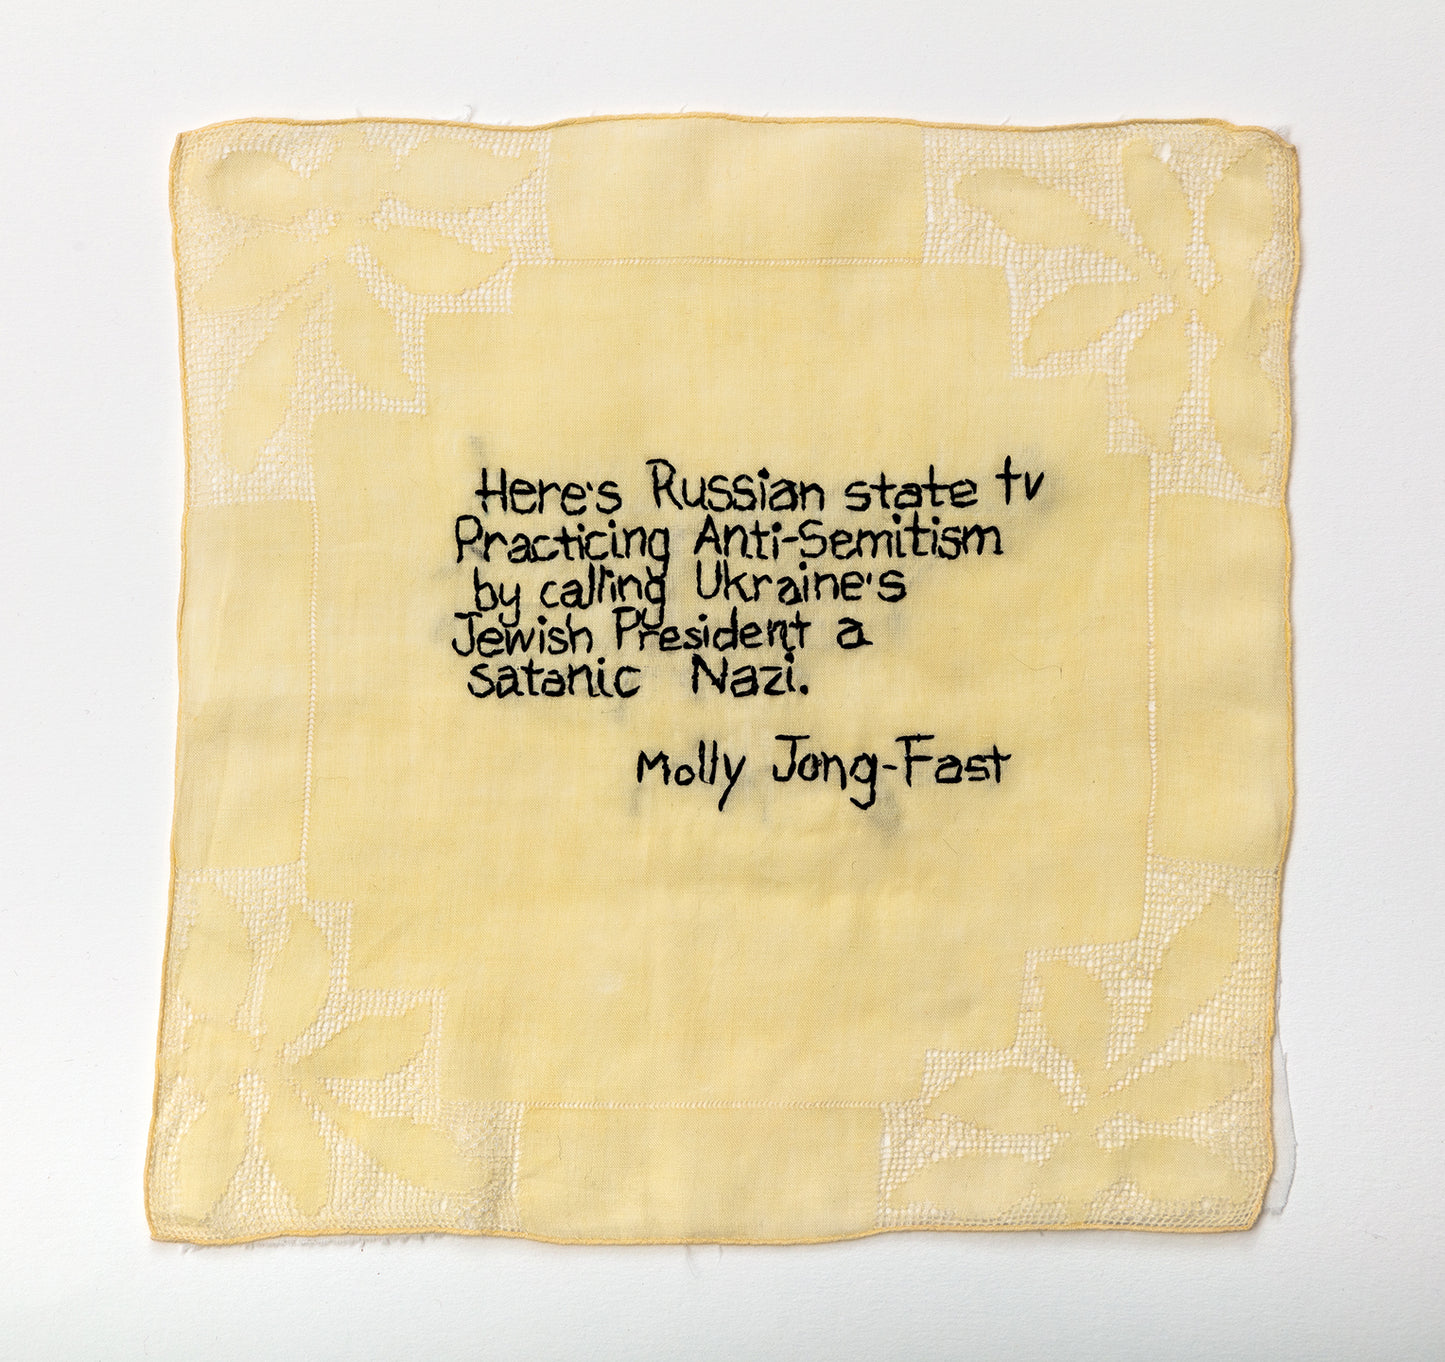 Here's Russian state tv
Practicing Anti-Semitism
by calling Ukraine's
Jewish President a
satanic Nazi.
Molly Jong-Fast